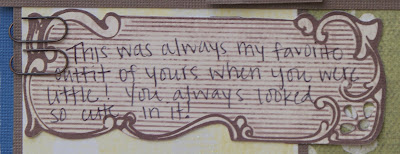 This was always my favorite
outfit of yours when you were
little! You always looked
so cute in it.